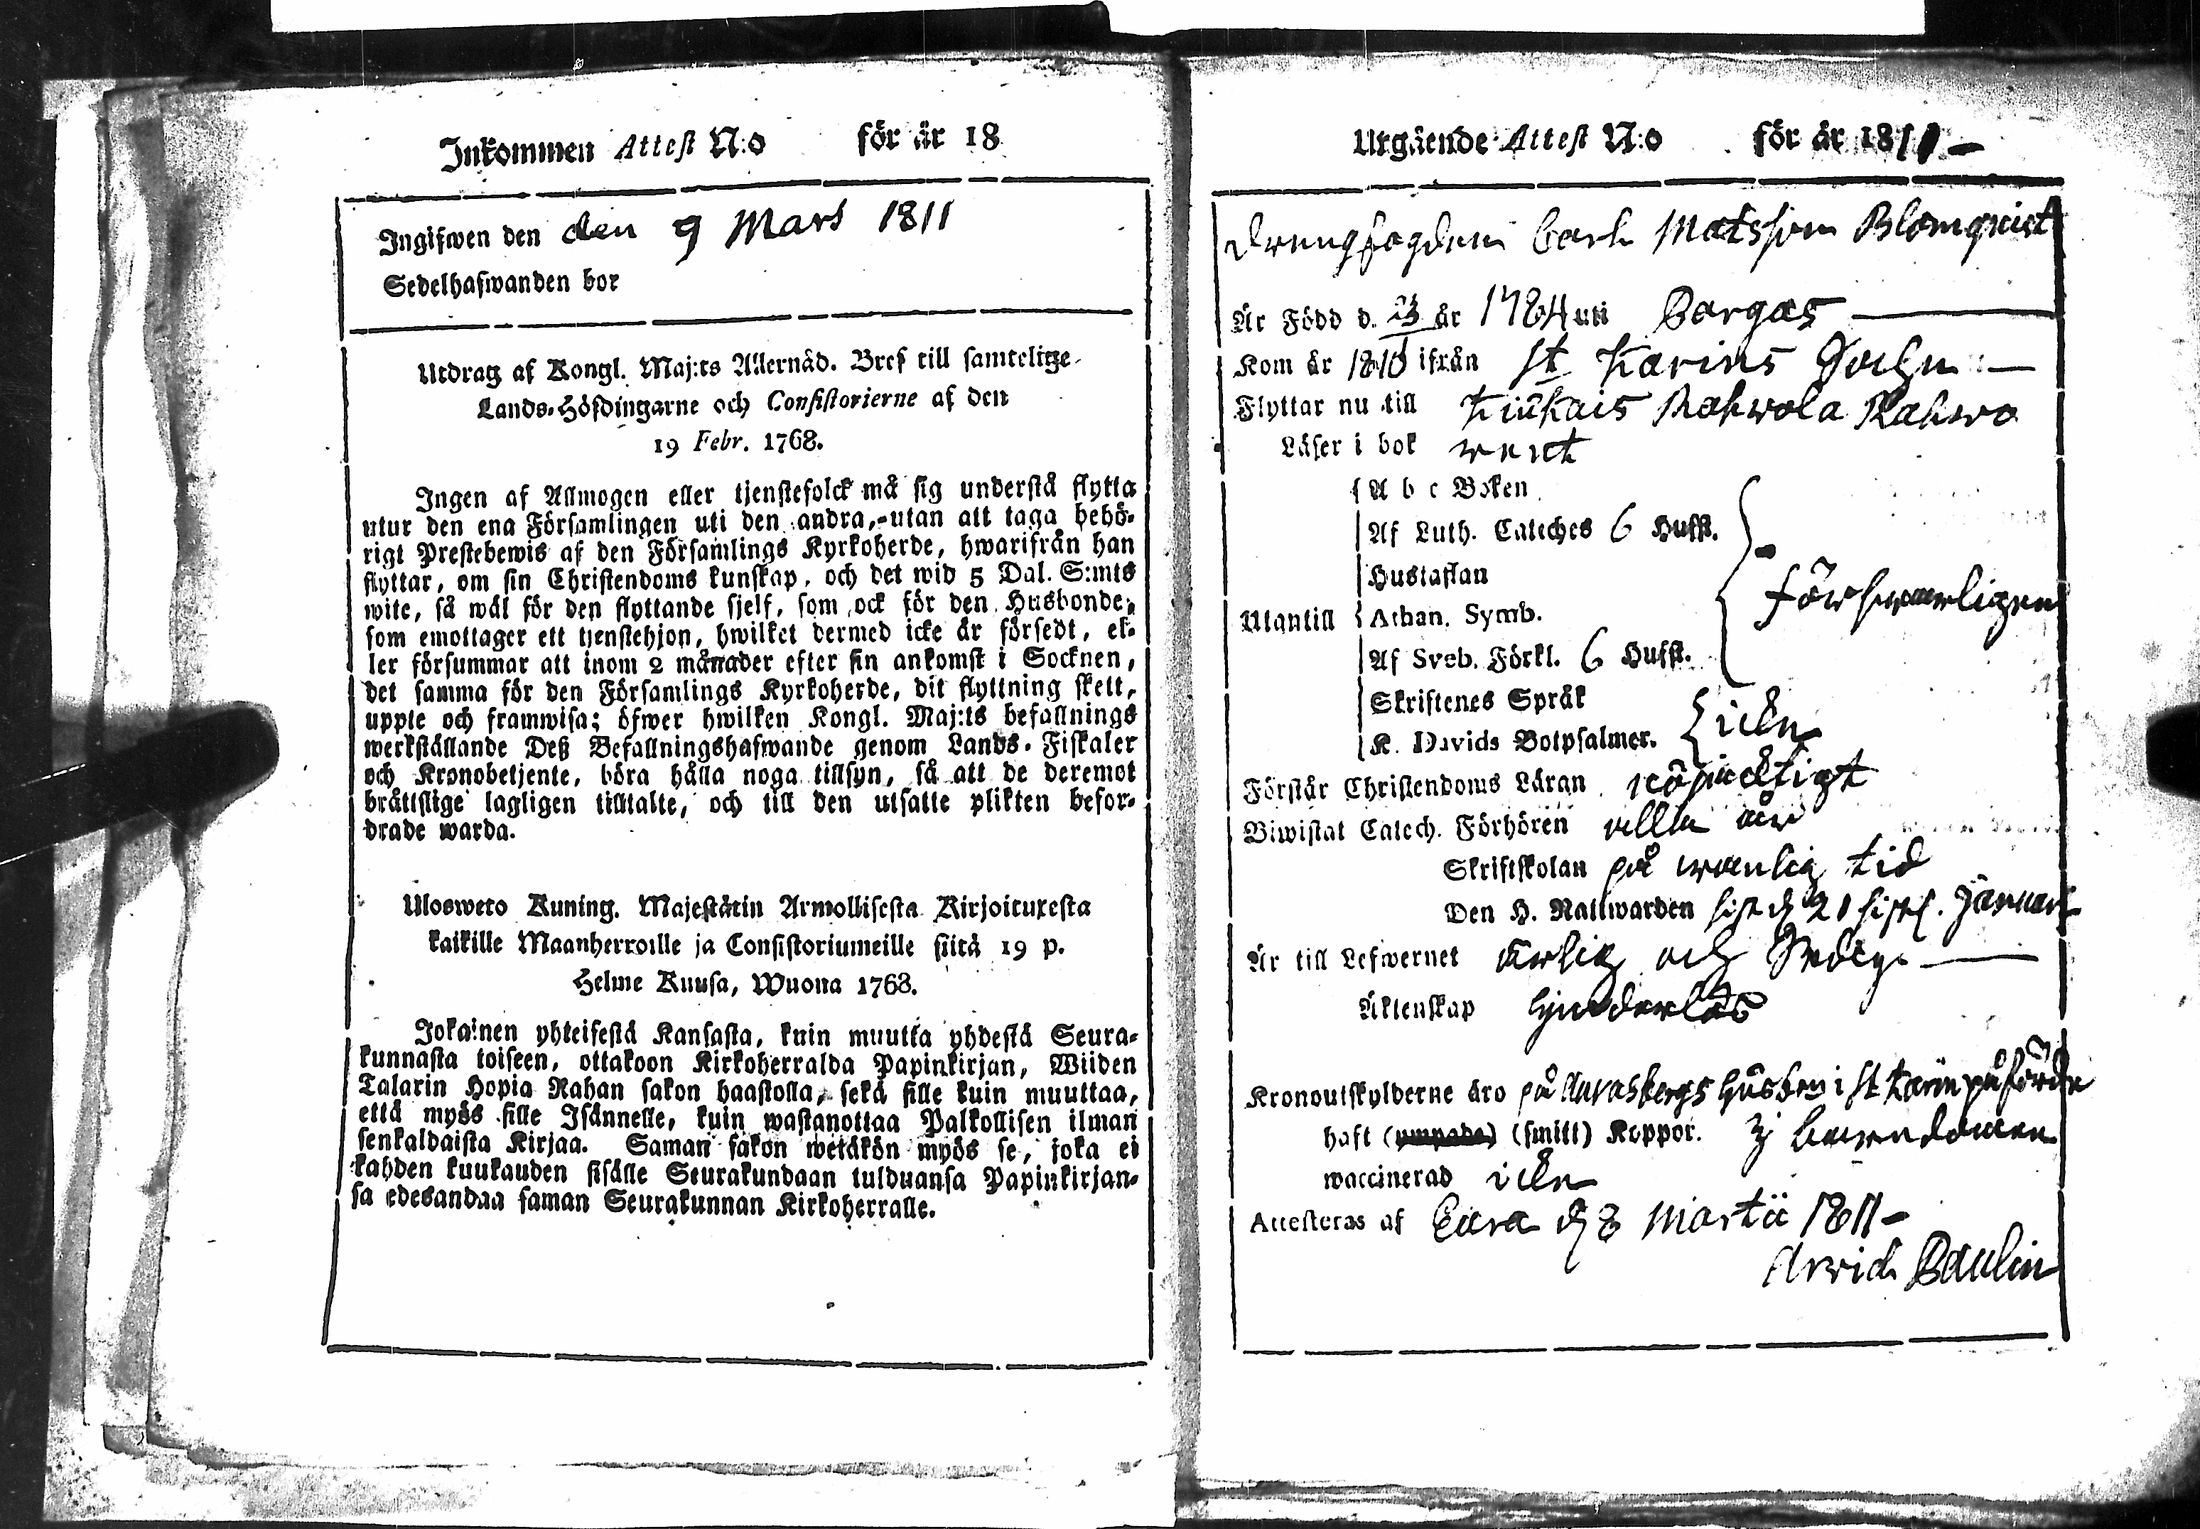 Inkommen Attest N:o för år 18
Ingifwen den den 9 Mars 1811
Sedelhafwanden bor
Utdrag af Kongl. Maj:ts Allernåd. Bref till samtelige
Lands-Höfdingarne och Consistorierne af den
19 Febr. 1768.
Ingen af Allmogen eller tjenstefolck må sig understå flytta
utur den ena Församlingen uti den andra, utan att taga behö-
rigt Prestebewis af den Församlings Kyrkoherde, hwarifrån han
flyttar, om sin Christendoms kunskap, och det wid 5 Dal. S:mts
wite, så wäl för den flyttande sjelf, som ock för den Husbonde,
som emottager ett tjenstehjon, hwilket dermed icke är försedt, el-
ler försummar att inom 2 månader efter sin ankomst i Socknen,
det samma för den Församlings Kyrkoherde, dit flyttning skett,
uppte och framwisa; öfwer hwilken Kongl. Maj:ts befallnings
werkställande Deß Befallningshafwande genom Lands-Fiskaler
och Kronobetjente, böra hålla noga tillsyn, så att de deremot
bråttslige lagligen tilltalte, och till den utsatte plikten befor-
drade warda.
Ulosweto Kuning. Majestätin Armollisesta Kirjoituxesta
kaikille Maanherroille ja Consistoriumeille siitä 19 p.
Helme Kuusa, Wuona 1768.
Jokainen yhteisestä Kansasta, kuin muutta yhdestä Seura-
kunnasta toiseen, ottakoon Kirkoherralda Papinkirjan, Wiiden
Talarin Hopia Rahan sakon haastolla, sekä sille kuin muuttaa,
että myös sille Isännelle, kuin wastanottaa Palkollisen ilman
senkaldaista Kirjaa. Saman sakon wetäkön myös se, joka ei
kahden kuukauden sisälle Seurakundaan tulduansa Papinkirjan-
sa edesandaa saman Seurakunnan Kirkoherralle.
Utgående Attest N:o för år 1811
Drengfogden Carl Matsson Blomquist
Är Född d. 23 år 1784 uti Pargas
Kom år 1810 ifrån St Karins Sochn
Flyttar nu till Kiukais Rahwola Rahwo
Läser i bok
A b c Boken
Af Luth. Cateches 6 Hufst.
Hustaflan
Utantill Athan. Symb. förswarligen
Af Sveb. Förkl. 6 Hufst.
Skriftenes Språk
K. Davids Botpsalmer. icke
Förstår Christendoms Läran
Biwistat Catech. Förhören alla år
Skriftskolan på wanlig tid
Den H. Nattwarden sist d 21 sistl. Januari
Är till Lefwernet ärlig och Sedig
Äktenskap hinderlös
Kronoutskylderne äro på Aurasbergs i St Karin påförde
haft (ympade) (smitt) Koppor. i barndomen
waccinerad icke
Attesteras af Eura d 8 Martii 1811
Arvid Paulin